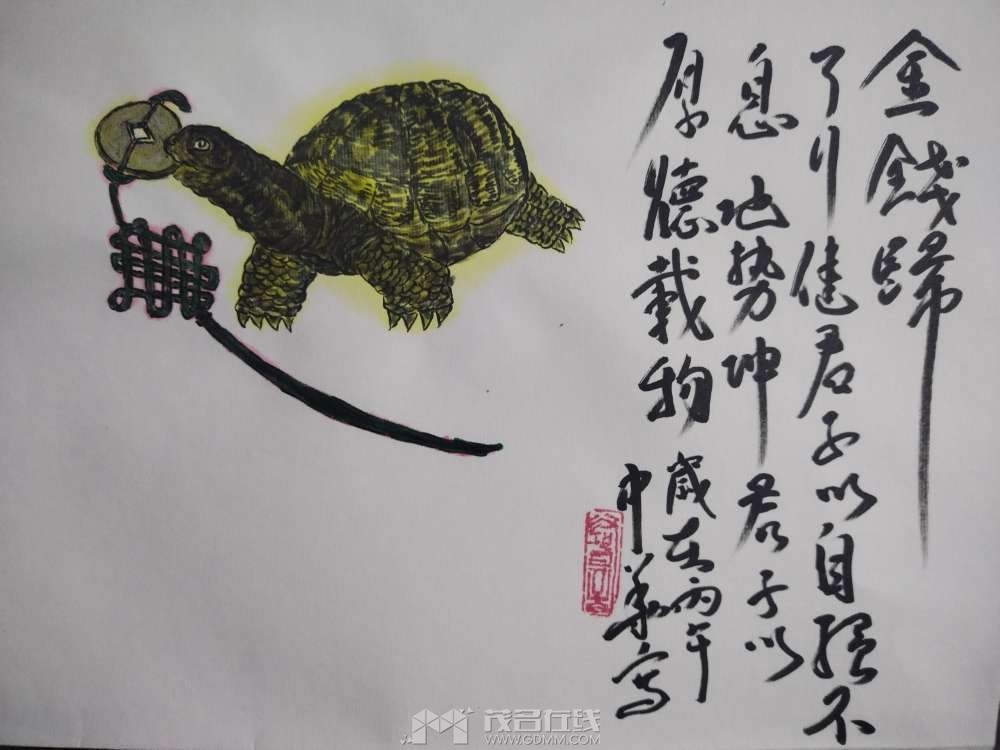 金錢歸
天行健君子以自强不
息地势坤君子以
厚德載物
歲在丙午
中華寫
茂名在线
WWW.GDMM.COM